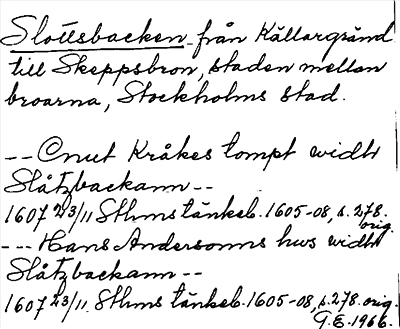 Slottsbacken från Källargränd
till Skeppsbron, staden mellan
broarna, Stockholms stad.
-- Cnut Kråkes tompt widh
Slåtzbackann --
1607 23/11 Sthms tänkeb. 1605-08, s. 278.
orig.
--- Hans Andersonns hws widh
Slåtzbackann --
1607 23/11. Sthms tänkeb. 1605-08, s. 278. orig.
G.E. 1966.